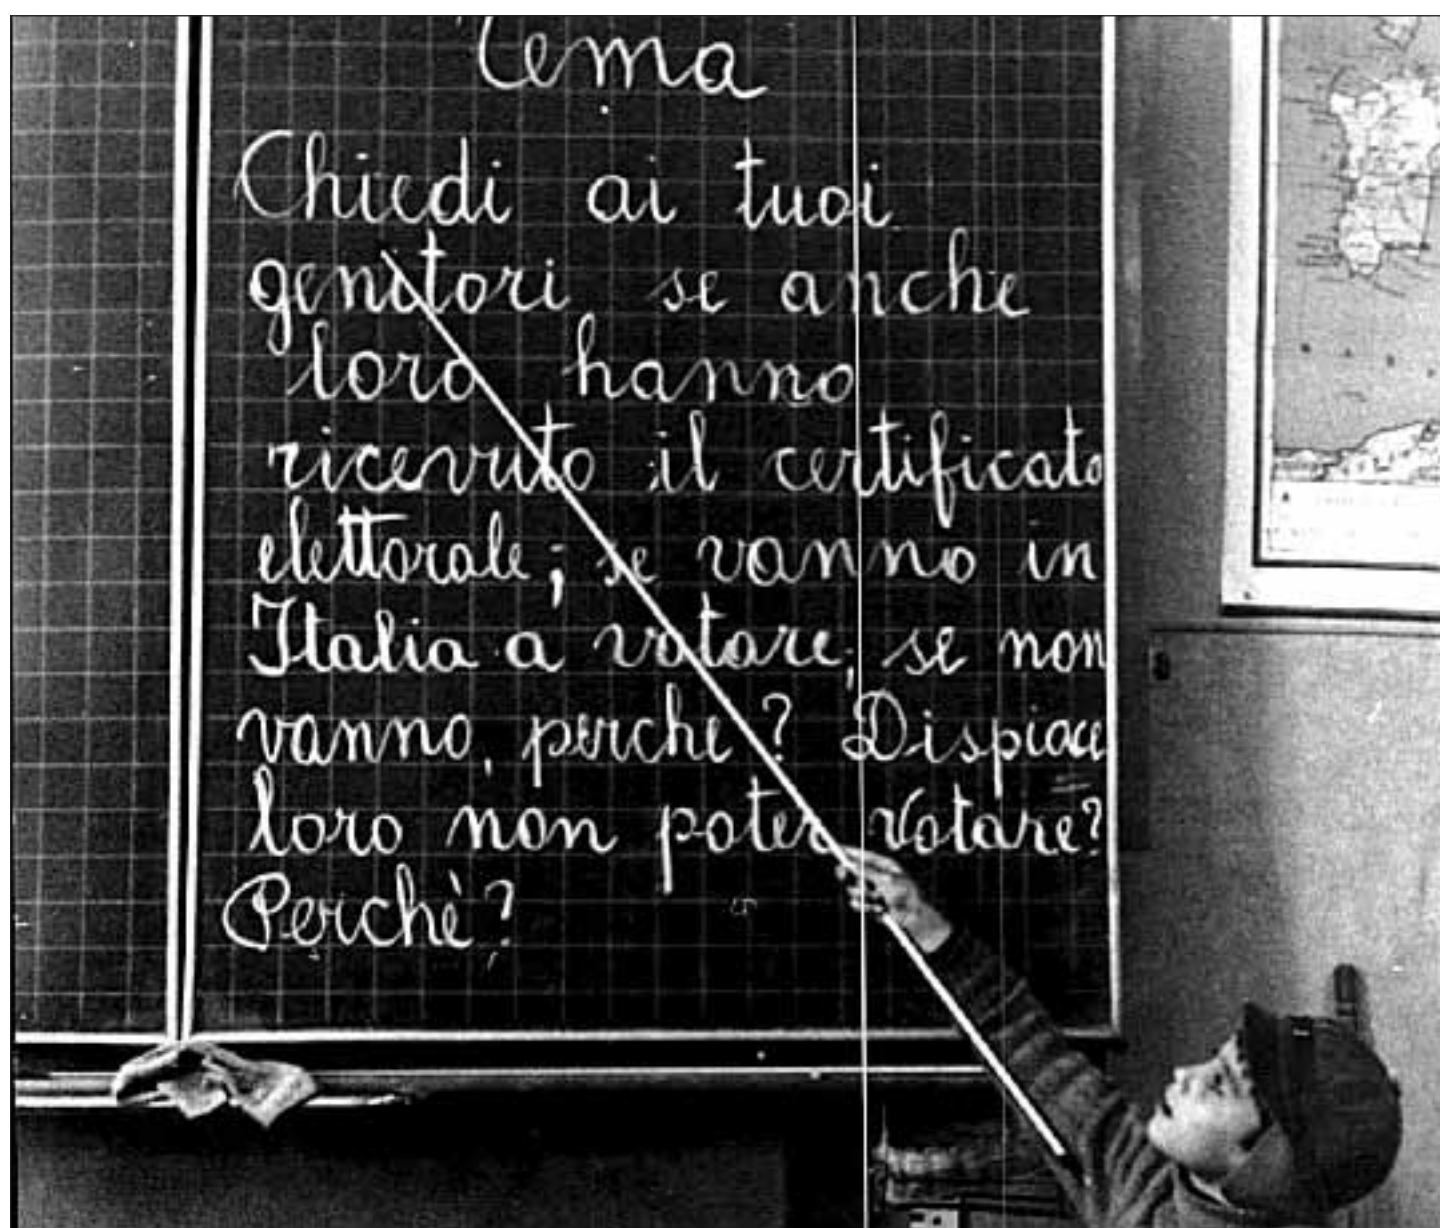 Tema
Chiedi ai tuoi
genitori se anche
loro hanno
ricevuto il certificato
elettorale; se vanno in
Italia a votare; se non
vanno, perche? Dispiace
loro non poter votare?
Perchè?